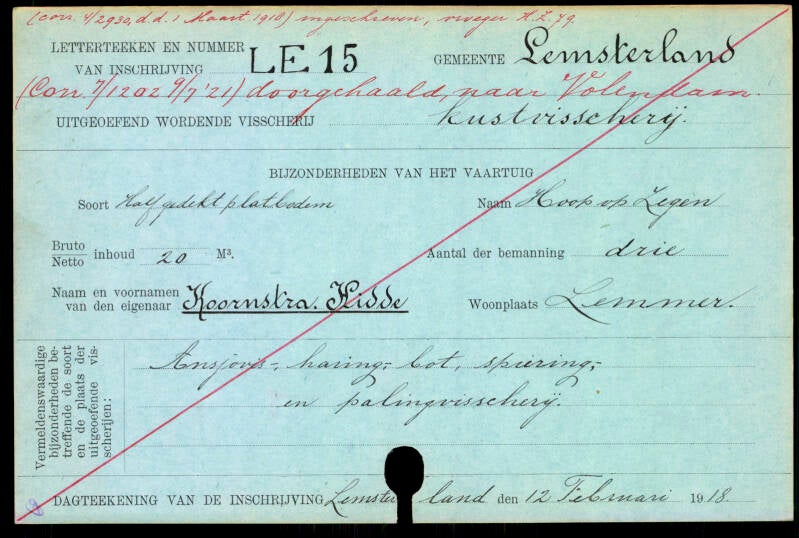 (Corr. 4/2930, d.d. 1 Maart 1918) ingeschreven, vroeger H.Z. 79.
LETTERTEEKEN EN NUMMER VAN INSCHRIJVING LE 15
GEMEENTE Lemsterland
(Corr. 7/1202 9/7 '21) doorgehaald, naar Volendam.
UITGEOEFEND WORDENDE VISSCHERIJ kustvisscherij.
BIJZONDERHEDEN VAN HET VAARTUIG
Soort Half gedekt platbodem
Naam Hoop op Zegen
Bruto
Netto inhoud 20 M³.
Aantal der bemanning drie
Naam en voornamen
van den eigenaar Koornstra. Hidde
Woonplaats Lemmer.
Vermeldenswaardige
bijzonderheden be-
treffende de soort
en de plaats der
uitgeoefende vis-
scherijen:
Ansjovis-, haring-, bot, spiering-,
en palingvisscherij.
DAGTEEKENING VAN DE INSCHRIJVING Lemsterland den 12 Februari 1918.